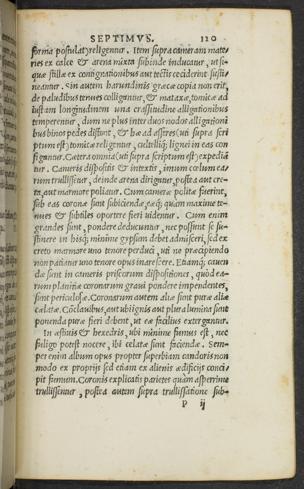 SEPTIMVS. 120
forma postulat, religentur. Item supra cameram mate
ries ex calce & arena mixta subinde inducatur, ut si-
quæ stillæ ex contignationibus aut tectis ceciderint susti-
neantur. Sin autem harundinis græcæ copia non erit,
de paludibus tenues colligantur, & mataxæ, tomicæ ad
iustam longitudinem una crassitudine alligationibus
temperentur, dum ne plus inter duos nodos alligationi
bus binos pedes distent, & hæ ad asseres (uti supra scri
ptum est) tomicæ religentur, cultelliq; lignei in eas con
figantur. Cætera omnia (uti supra scriptum est) expediã
tur. Cameris dispositis & intextis, imum cœlum ea-
rum trullissetur, deinde arena dirigatur, postea aut cre-
ta, aut marmore poliatur. Cum cameræ politæ fuerint,
sub eas coronæ sunt subiiciendæ, eæq; quàm maxime te-
nues & subtiles oportere fieri uidentur. Cum enim
grandes sunt, pondere deducuntur, nec possunt se su-
stinere in hisq; minime gypsum debet admisceri, sed ex
creto marmore uno tenore perduci, uti ne præcipiendo
non patiatur uno tenore opus inarescere. Etiamq; cauen
dæ sunt in cameris priscorum dispositiones, quòd ea-
rum planitiæ coronarum graui pondere impendentes,
sunt periculosæ. Coronarum autem aliæ sunt puræ aliæ
cælatæ. Cõclauibus, aut ubi ignis aut plura lumina sunt
ponenda puræ fieri debent, ut eæ facilius extergantur.
In æstiuis & hexedris, ubi minime fumus est, nec
fuligo potest nocere, ibi cælatæ sunt faciendæ. Sem-
per enim album opus propter superbiam candoris non
modo ex propriis sed etiam ex alienis ædificiis conci-
pit fumum. Coronis explicatis parietes quàm asperrime
trullissentur, postea autem supra trullissatione sub-
P ij